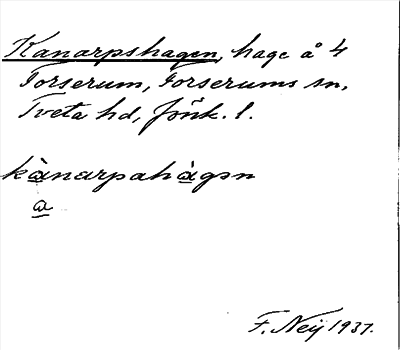 Kanarpshagen, hage å 4
Torserum, Forserums sn,
Tveta hd, Jönk. l.
kànarpahàgən
a
F. Neij 1937.